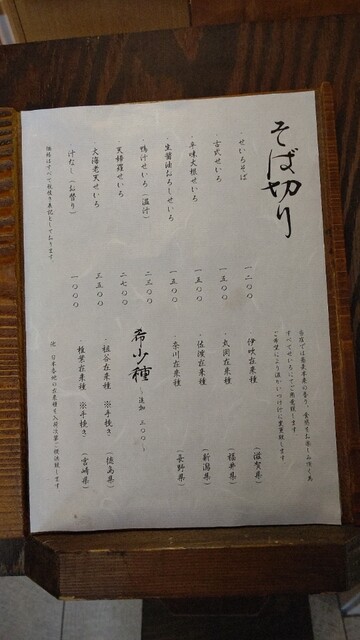 そば切り
・せいろそば 一二〇〇
・古式せいろ 一五〇〇
・辛味大根せいろ 一五〇〇
・生醤油おろしせいろ 一五〇〇
・鴨汁せいろ(温汁) 二三〇〇
・天婦羅せいろ 二七〇〇
・大海老天せいろ 三五〇〇
・汁なし(お替り) 一〇〇〇
価格はすべて税抜き表記としております
当店では蕎麦本来の香り、食感をお楽しみ頂く為
すべてせいろにてご用意致します
ご希望により温かいつけ汁に変更致します
・伊吹在来種 (滋賀県)
・丸岡在来種 (福井県)
・佐渡在来種 (新潟県)
・奈川在来種 (長野県)
希少種 〜追加 三〇〇〜
・祖谷在来種 ※手挽き (徳島県)
・椎葉在来種 ※手挽き (宮崎県)
他 日本各地の在来種を入荷次第ご提供致します